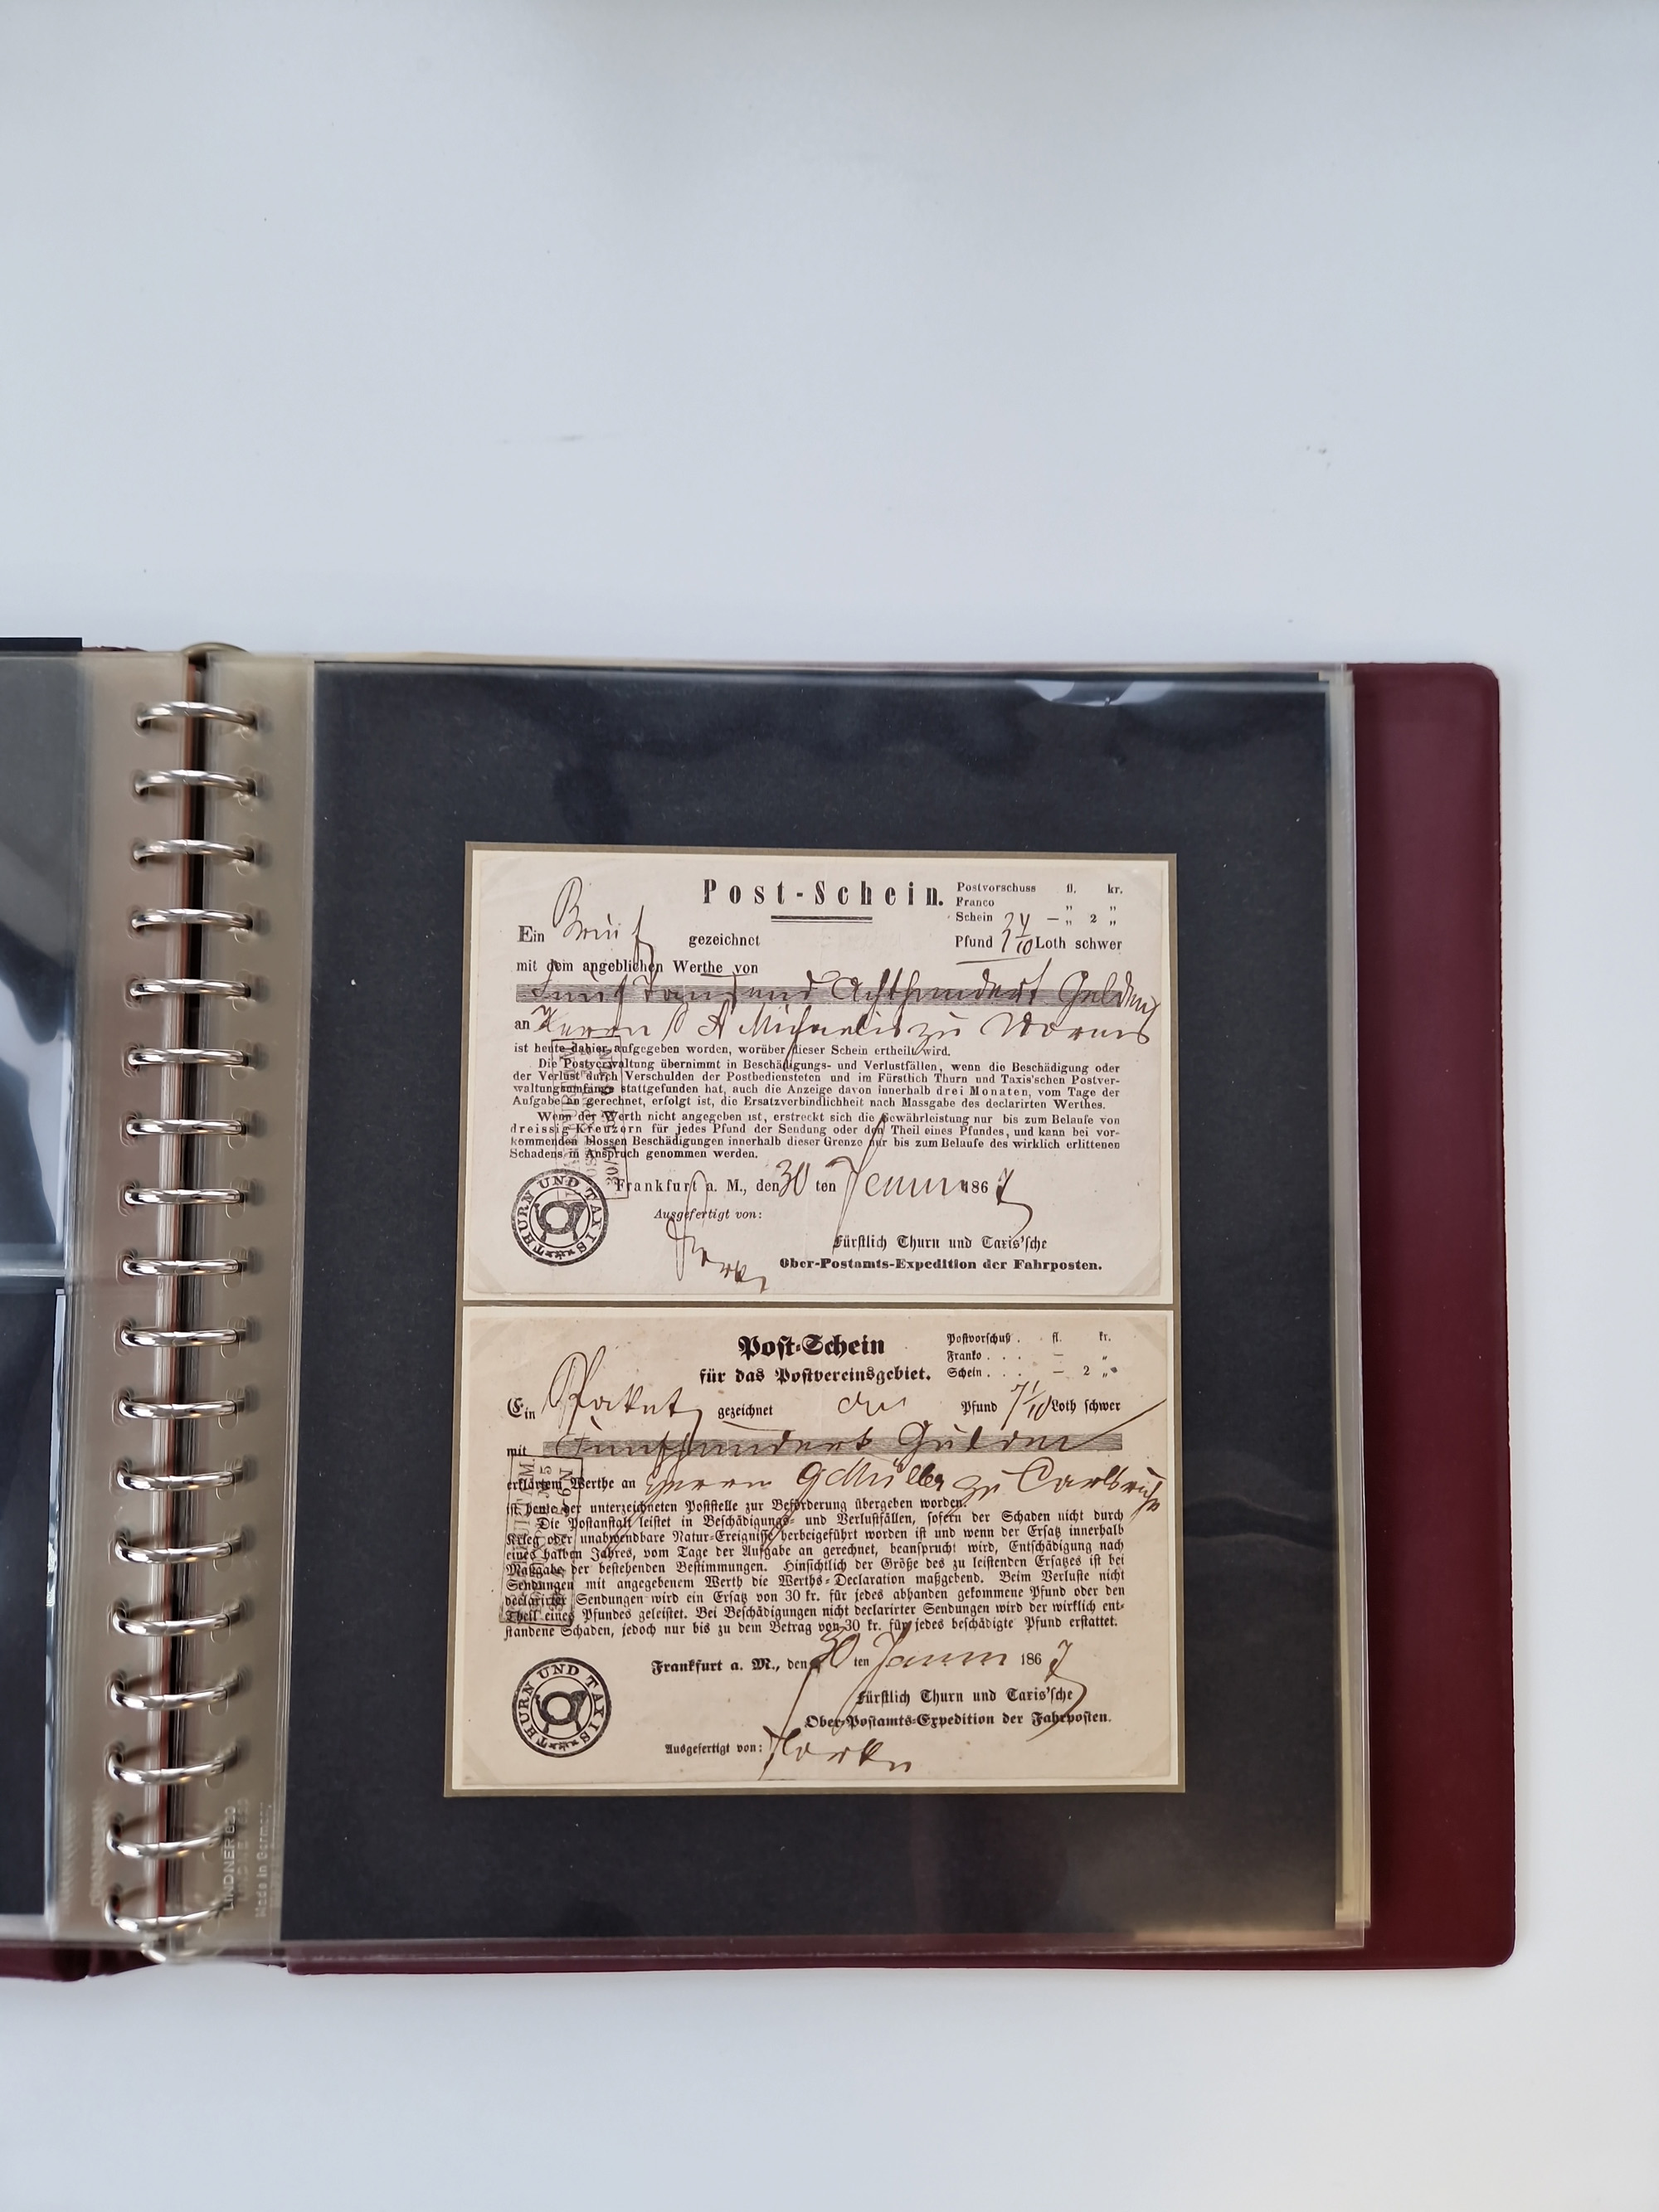 Post-Schein.
Postvorschuss fl. kr.
Franco „ „
Schein — „ 2 „
Ein Brief gezeichnet Pfund Loth schwer
mit dem angeblichen Werthe von
Fünf Tausend Achthundert Gulden
an Herrn A Michaelis zu Worms
ist heute dahier aufgegeben worden, worüber dieser Schein ertheilt wird.
Die Postverwaltung übernimmt in Beschädigungs- und Verlustfällen, wenn die Beschädigung oder
der Verlust durch Verschulden der Postbediensteten und im Fürstlich Thurn und Taxis'schen Postver-
waltungsumfange stattgefunden hat, auch die Anzeige davon innerhalb drei Monaten, vom Tage der
Aufgabe an gerechnet, erfolgt ist, die Ersatzverbindlichheit nach Massgabe des declarirten Werthes.
Wenn der Werth nicht angegeben ist, erstreckt sich die Gewährleistung nur bis zum Belaufe von
dreissig Kreuzern für jedes Pfund der Sendung oder den Theil eines Pfundes, und kann bei vor-
kommenden blossen Beschädigungen innerhalb dieser Grenze nur bis zum Belaufe des wirklich erlittenen
Schadens in Anspruch genommen werden.
Frankfurt a. M., den 30 ten Januar 1867
Ausgefertigt von:
THURN UND TAXIS
Fürstlich Thurn und Taxis'sche
Ober-Postamts-Expedition der Fahrposten.
Post-Schein
für das Postvereinsgebiet.
Postvorschuß . fl. kr.
Franko . . . — „
Schein . . . — 2 „
Ein Paket gezeichnet Pfund 7 1/10 Loth schwer
mit Fünfhundert Gulden
erklärtem Werthe an Herrn G Müller zu Carlsruhe
ist heute der unterzeichneten Poststelle zur Beförderung übergeben worden.
Die Postanstalt leistet in Beschädigungs- und Verlustfällen, sofern der Schaden nicht durch
Krieg oder unabwendbare Natur-Ereignisse herbeigeführt worden ist und wenn der Ersatz innerhalb
eines halben Jahres, vom Tage der Aufgabe an gerechnet, beansprucht wird, Entschädigung nach
Maßgabe der bestehenden Bestimmungen. Hinsichtlich der Größe des zu leistenden Ersatzes ist bei
Sendungen mit angegebenem Werth die Werths-Declaration maßgebend. Beim Verluste nicht
declarirter Sendungen wird ein Ersatz von 30 kr. für jedes abhanden gekommene Pfund oder den
Theil eines Pfundes geleistet. Bei Beschädigungen nicht declarirter Sendungen wird der wirklich ent-
standene Schaden, jedoch nur bis zu dem Betrag von 30 kr. für jedes beschädigte Pfund erstattet.
Frankfurt a. M., den 30 ten Januar 1867
THURN UND TAXIS
Fürstlich Thurn und Taxis'sche
Ober-Postamts-Expedition der Fahrposten.
Ausgefertigt von:
LINDNER
Made in Germany